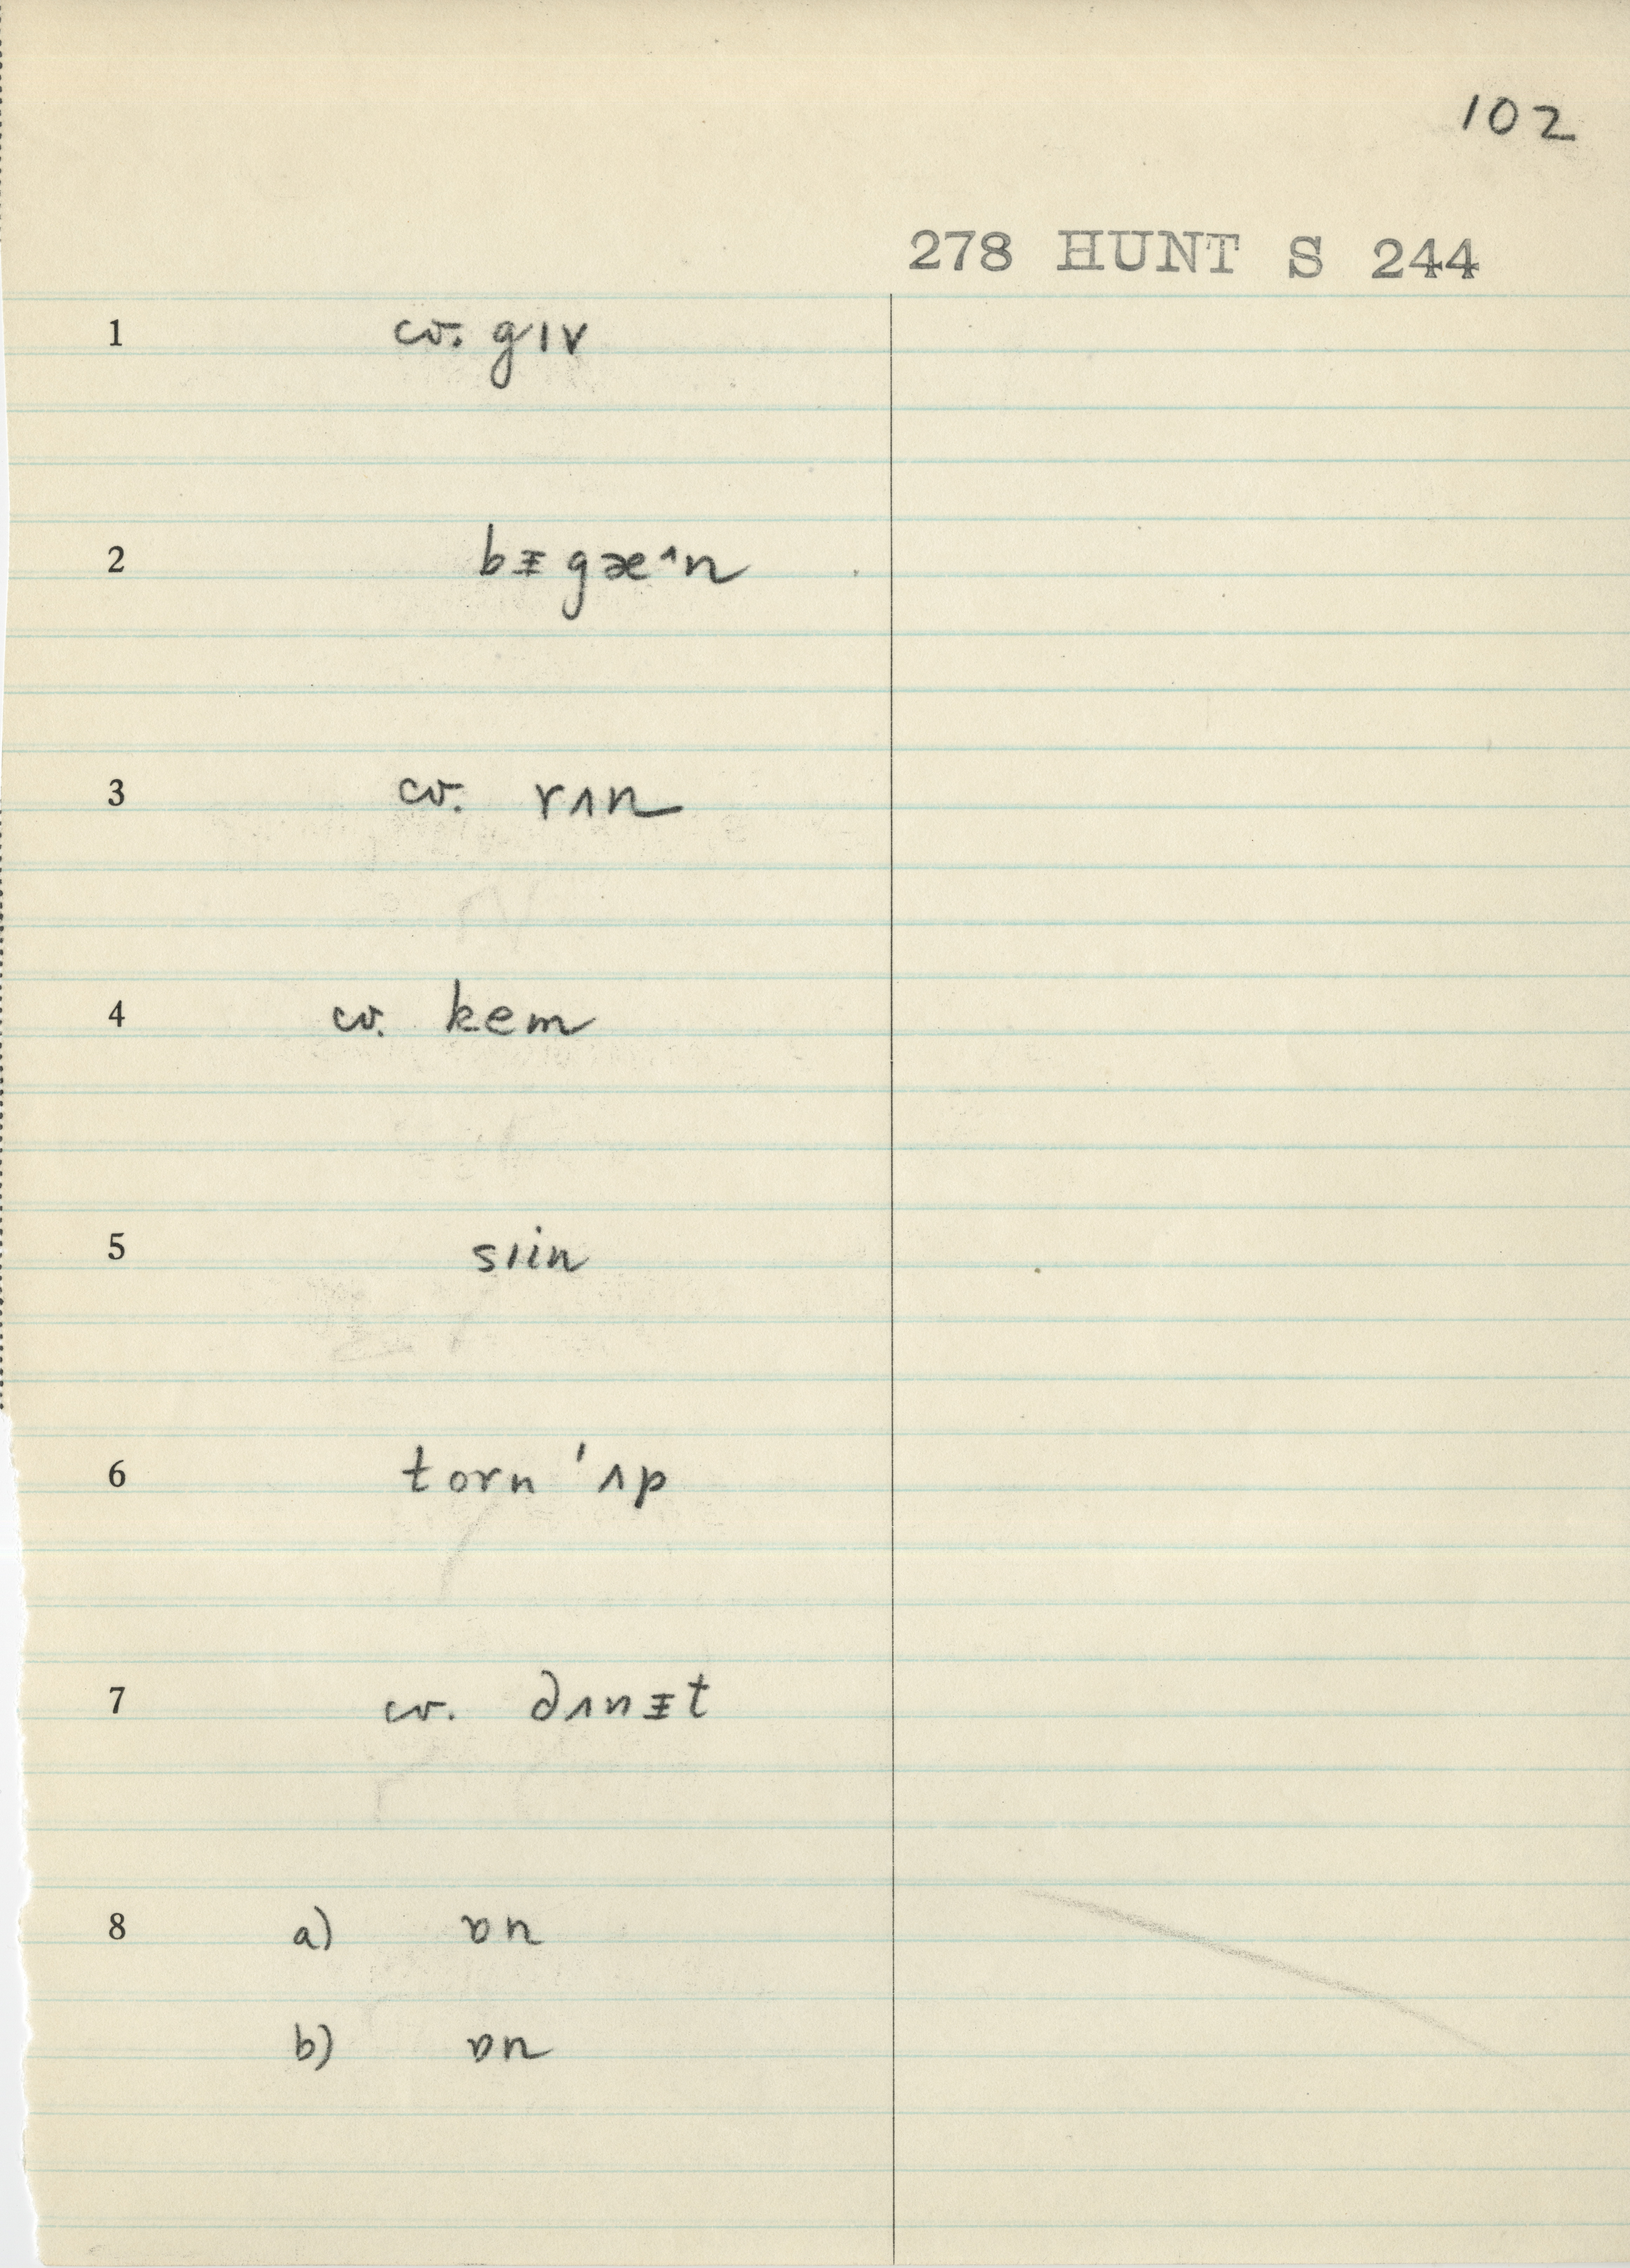 102
278 HUNT S 244
1 cv. gɪv
2 bᵻgæ^n
3 cv. rʌn
4 cv. kem
5 sɪin
6 torn 'ʌp
7 cv. ∂ʌnᵻt
8 a) ɒn
b) ɒn